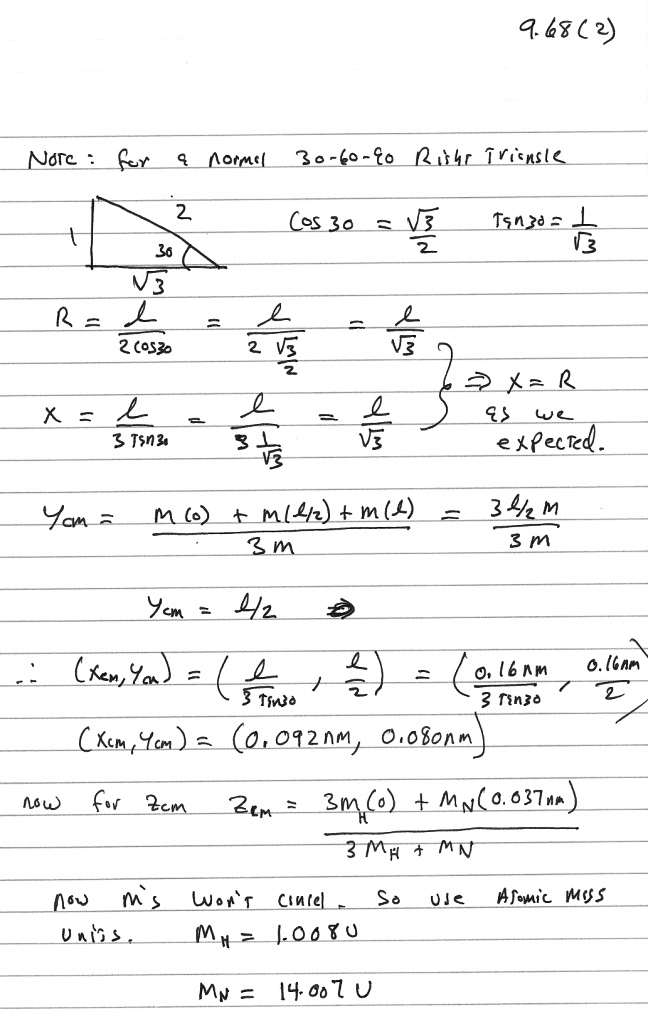 9.68(2)
Note: for a normal 30-60-90 Right Triangle
1 2 30 √3 Cos 30 = √3/2 Tan 30 = 1/√3
R = l/(2 cos 30) = l/(2 √3/2) = l/√3
⇒ X = R
X = l/(3 Tan 30) = l/(3 1/√3) = l/√3
as we
expected.
Ycm = (M(0) + M(l/2) + M(l))/(3M) = (3 l/2 M)/(3M)
Ycm = l/2 ⇒
∴ (Xcm, Ycm) = (l/(3 Tan 30), l/2) = (0.16nm/(3 Tan 30), 0.16nm/2)
(Xcm, Ycm) = (0.092nm, 0.080nm)
now for Zcm Zcm = (3M_H(0) + M_N(0.037nm))/(3M_H + M_N)
now M's won't cancel. So use Atomic Mass
Units. M_H = 1.008 U
M_N = 14.007 U